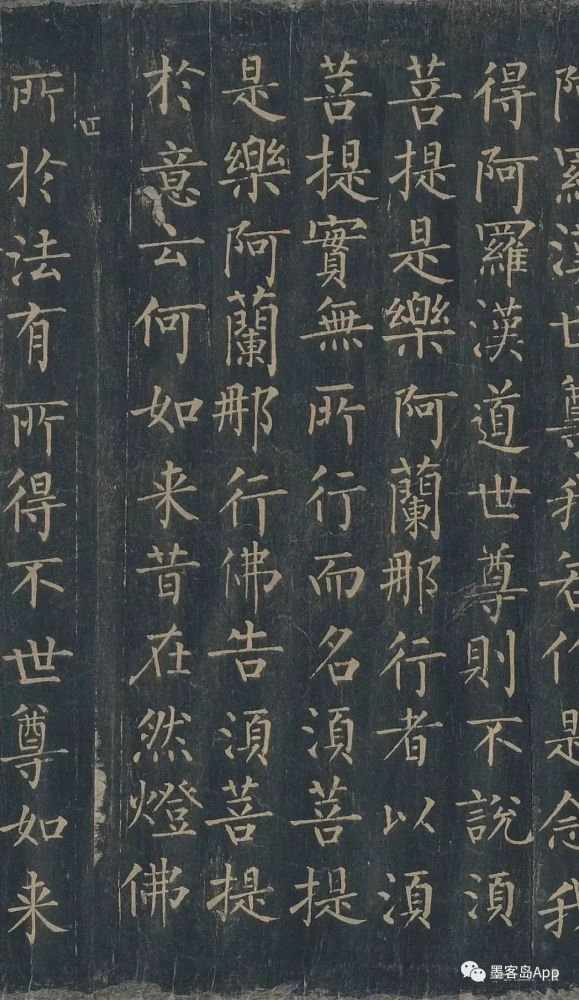 阿羅漢世尊我若作是念我
得阿羅漢道世尊則不說須
菩提是樂阿蘭那行者以須
菩提實無所行而名須菩提
是樂阿蘭那行佛告須菩提
於意云何如来昔在然燈佛
四
所於法有所得不世尊如来
墨客岛App